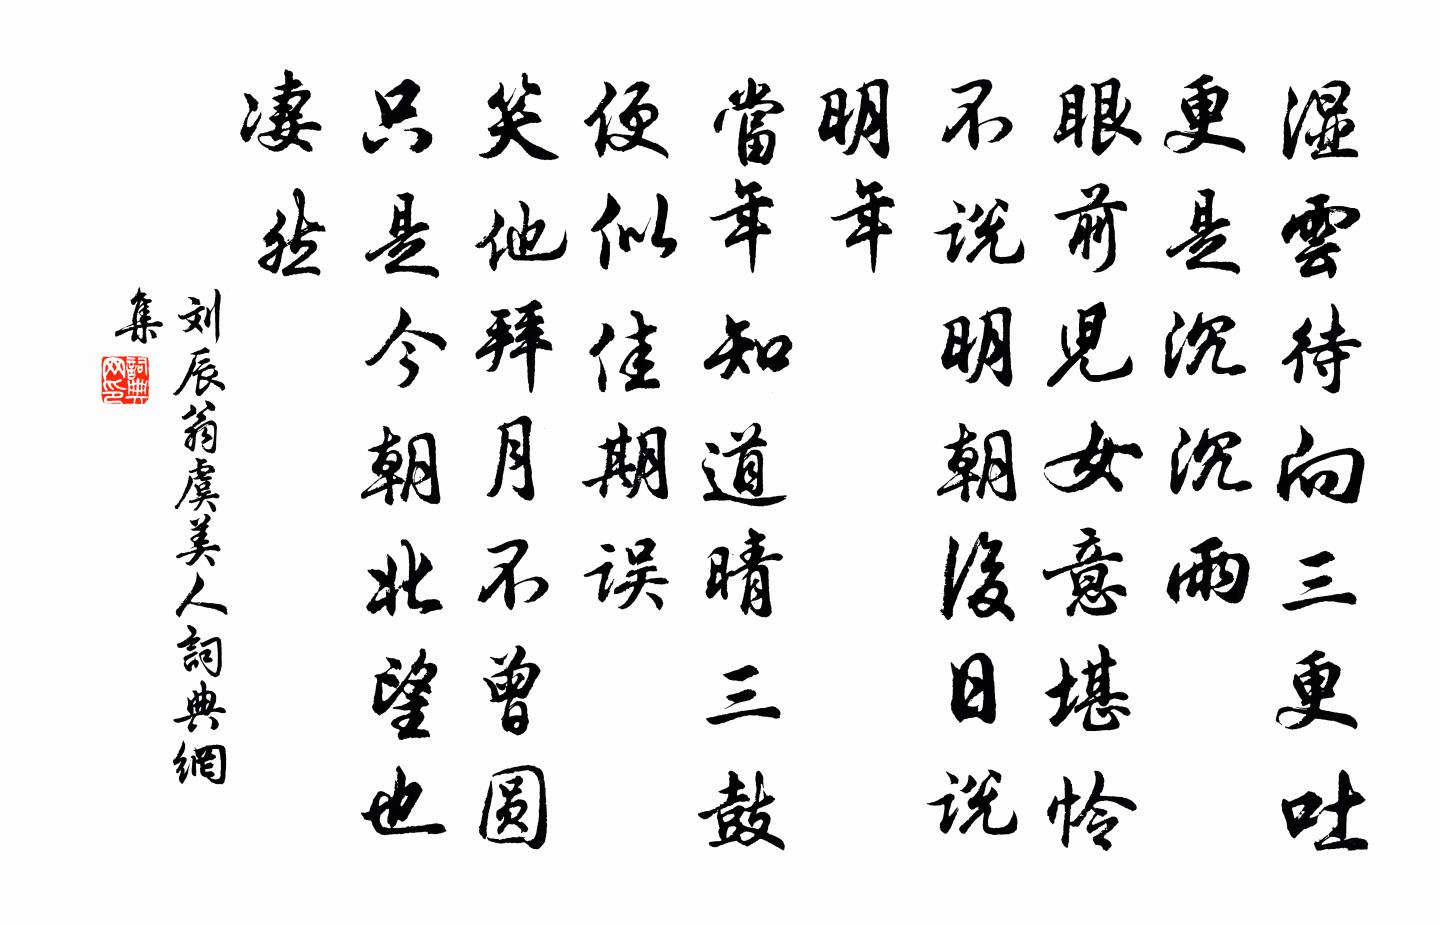 湿雲待向三更吐
更是沉沉雨
眼前児女意堪怜
不说明朝後日说
明年
當年知道晴三鼓
便似佳期误
笑他拜月不曾圆
只是今朝北望也
凄然
刘辰翁虞美人詞典網
集
詞典网印